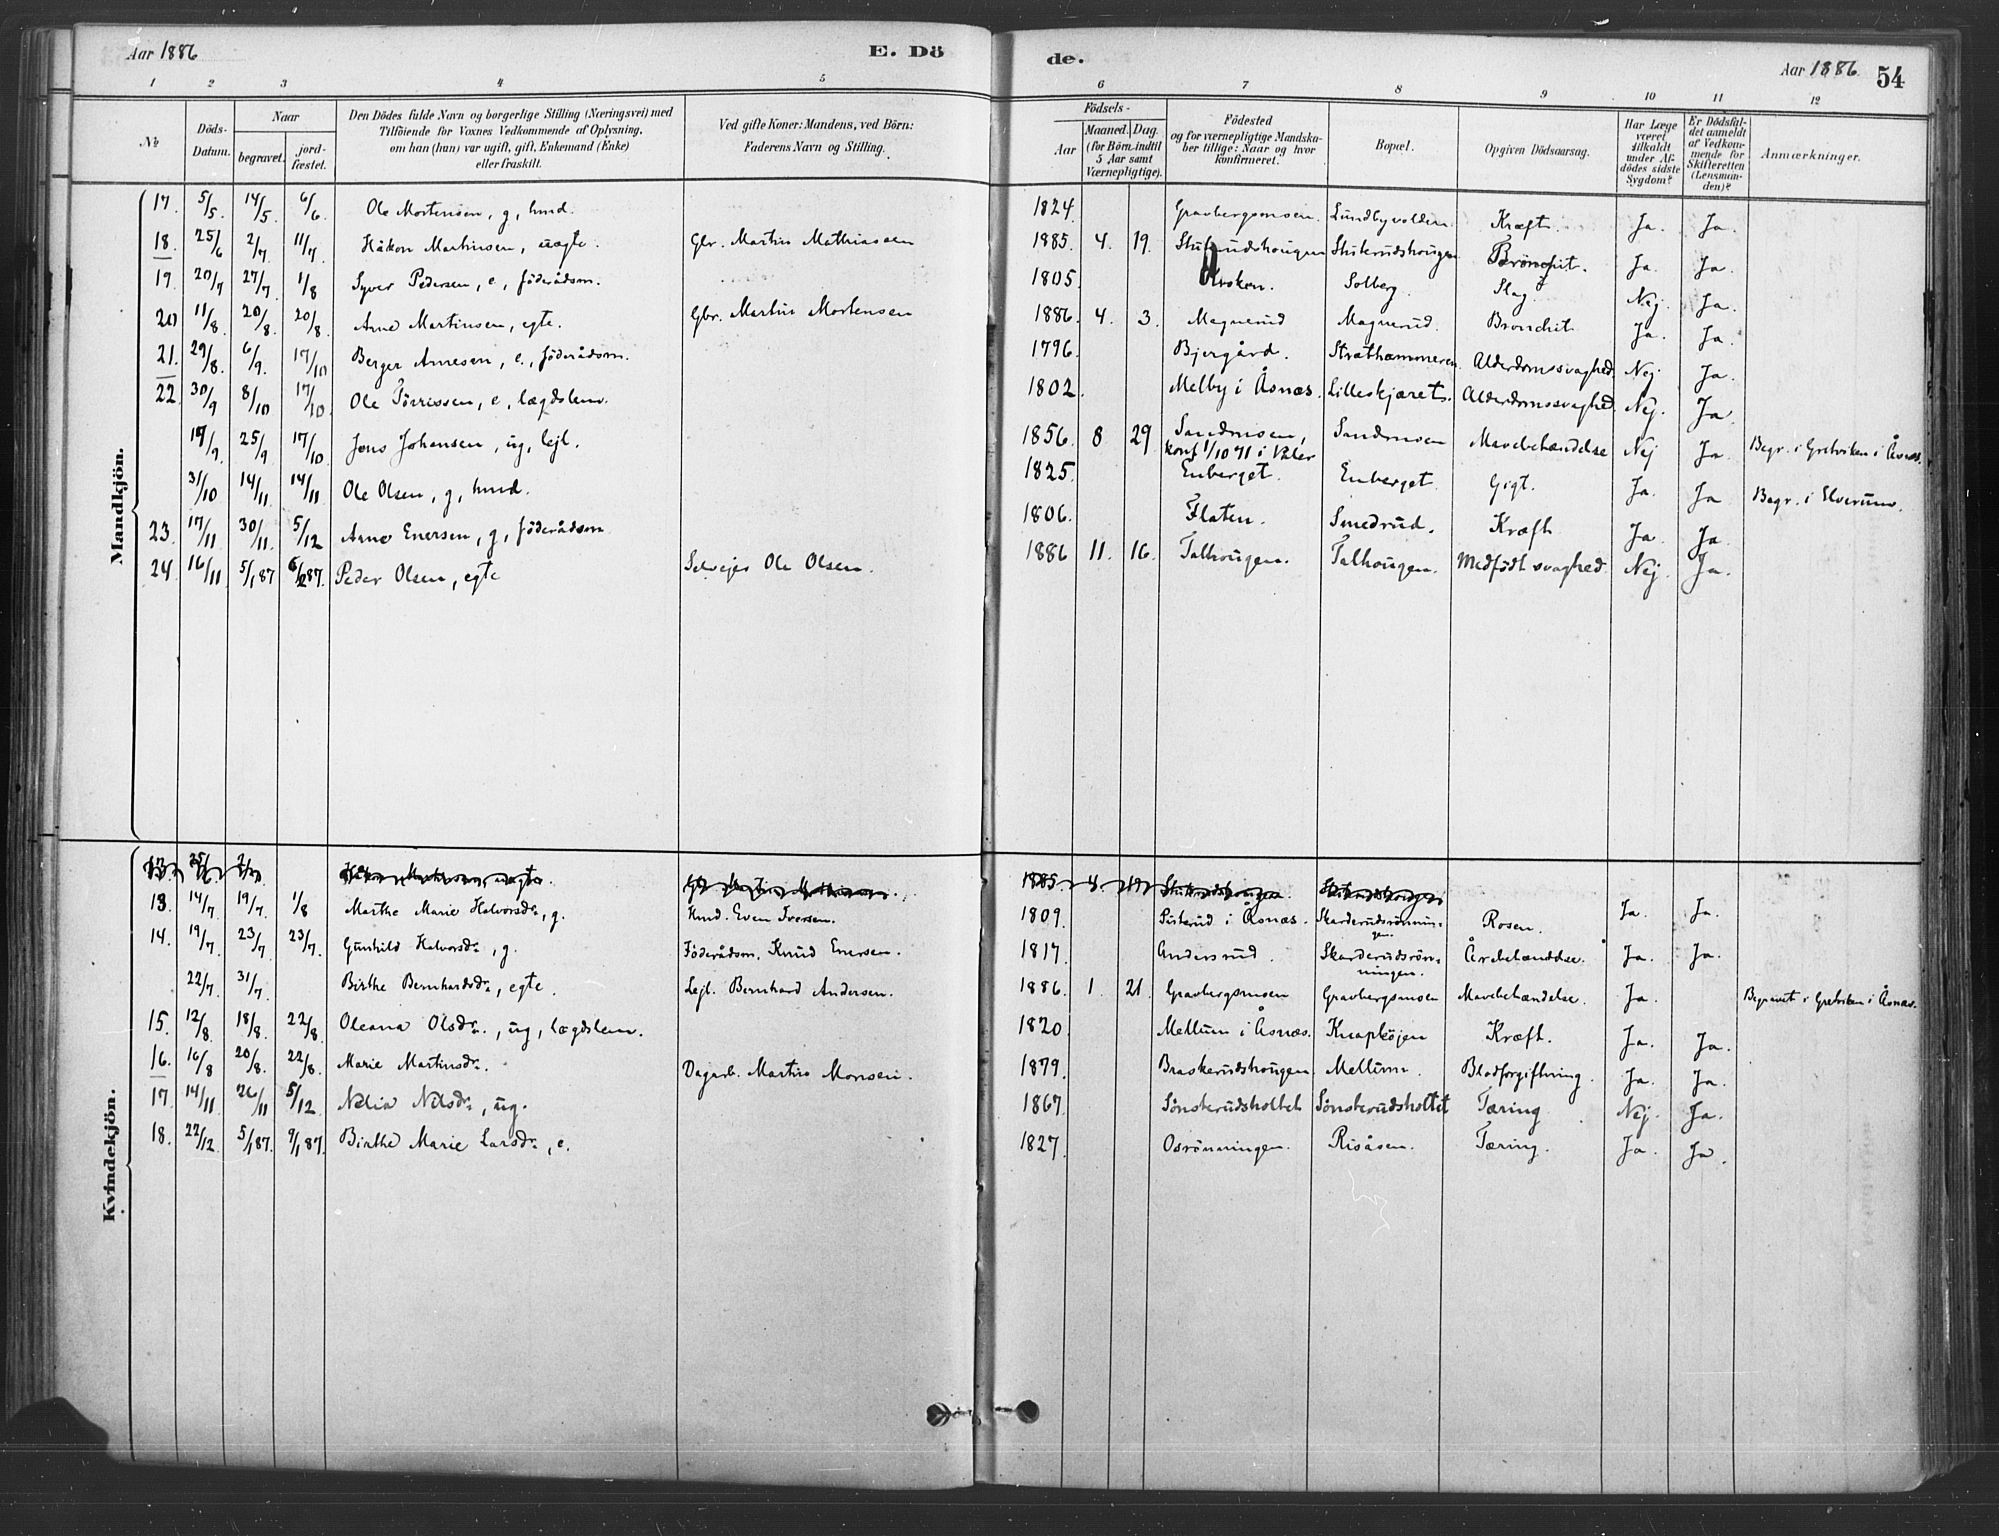 Aar 1886
E. Dö
de.
Aar 1886.
54
1 2 3 4 5 6 7 8 9 10 11 12
№
Döds-Datum.
Naar
begravet.
jord-fæstet.
Den Dödes fulde Navn og borgerlige Stilling (Næringsvei) med
Tilföiende for Voxnes Vedkommende af Oplysning,
om han (hun) var ugift, gift, Enkemand (Enke)
eller fraskilt.
Ved gifte Koner: Mandens, ved Börn:
Faderens Navn og Stilling.
Födsels-
Aar
Maaned. Dag.
(for Börn indtil
5 Aar samt
Værnepligtige).
Födested
og for værnepligtige Mandska-
ber tillige: Naar og hvor
konfirmeret.
Bopæl.
Opgiven Dödsaarsag.
Har Læge
været
tilkaldt
under Af-
dödes sidste
Sygdom?
Er Dödsfal-
det anmeldt
af Vedkom-
mende for
Skifteretten
(Lensman-
den)?
Anmærkninger.
Mandkjön.
17. 5/5. 14/5 6/6. Ole Mortensen, g, hmd. 1824. Gravbergsmoen. Lundbyvolden Kræft. Ja. Ja.
18. 25/6 2/7. 11/7. Håkon Martinsen, uægte. Gbr. Martin Mathiassen 1885. 4. 19. Stuterudshougen Bronchit. Ja. Ja.
19. 20/7 27/7. 1/8 Syver Pedersen, e, föderådsm. 1805. Solberg. Slag. Nej. Ja.
20 11/8. 20/8. 20/8. Arne Martinsen, egte. Gbr. Martin Mortensen 1886. 4. 3. Magnerud Magnerud. Bronchit. Ja. Ja.
21. 29/8. 6/9. 17/10 Berger Arnesen, e., föderådsm. 1796. Bjergård. Stræthammeren Alderdomssvaghed. Nej. Ja.
22. 30/9 8/10 17/10 Ole Törrissen, e, lægdslem. 1802. Melby i Åsnæs. Lilleskjæret. Alderdomssvaghed. Nej. Ja
19/9. 25/9 17/10 Jens Johansen, ug, lejl. 1856. 8 29 Sandmoen, konf 1/10 71 i Våler Sandmoen Mavebetændelse Nej Ja Begr. i Gretviken i Åsnæs.
31/10 14/11 14/11 Ole Olsen, g, hmd. 1825. Enberget. Enberget. Gigt. Ja. Ja Begr. i Elverum.
23. 17/11 30/11. 5/12 Arne Enersen, g, föderådsm 1806. Flaten. Smedrud. Kræft Ja. Ja.
24. 16/11 5/1 87 6/2 87. Peder Olsen, egte Selvejer Ole Olsen. 1886 11. 16. Talhougen. Talhougen. Medfödt svaghed. Nej. Ja.
Kvindekjön.
13. 14/7. 19/7. 1/8 Marthe Marie Halvorsdr., g. Hmd. Even Iversen. 1809. Sisterud i Åsnæs. Skarderudsrönningen. Rosen. Ja. Ja.
14. 19/7. 23/7 23/7. Gunhild Halvorsdr., g. Föderådsm. Knud Enersen. 1817. Andersrud. Skarderudsrönningen. Årebetændelse. Ja. Ja.
22/7. 31/7. Birthe Bernhardsdr., egte. Lejl. Bernhard Andersen. 1886. 1. 21. Gravbergsmoen Gravbergsmoen Mavebetændelse. Ja. Begravet i Gretviken i Åsnæs.
15. 12/8. 18/8. 22/8 Oleana Olsdr., ug, lægdslem. 1820 Mellum i Åsnæs. Knapköjen Kræft. Ja. Ja.
16. 16/8 20/8. 22/8. Marie Martinsdr. Dagarb. Martin Monsen. 1879. Braskerudshougen Mellum. Blodforgiftning. Ja. Ja.
17. 14/11 26/11 5/12 Nelia Nilsdr., ug. 1867. Sönsterudsholtet Sönsterudsholtet Tæring Nej. Ja.
18. 22/12. 5/1 87. 9/1 87. Birthe Marie Larsdr., e. 1827. Osrönningen. Risåsen. Tæring. Ja. Ja.